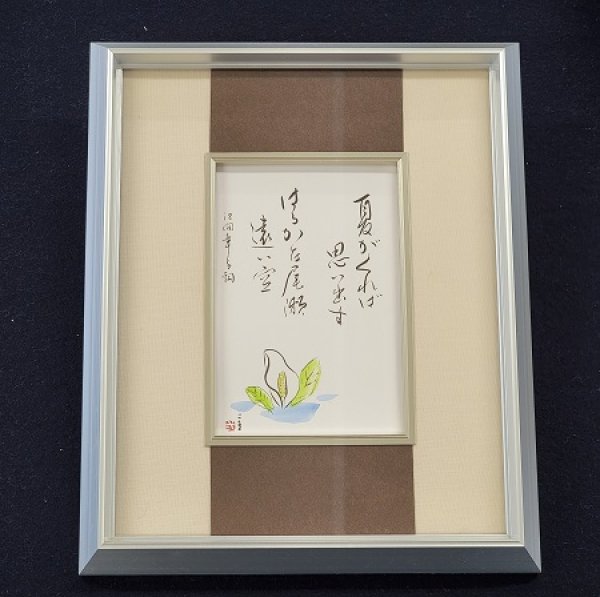 夏がくれば
思い出す
はるかな尾瀬
遠い空
江間章子詞